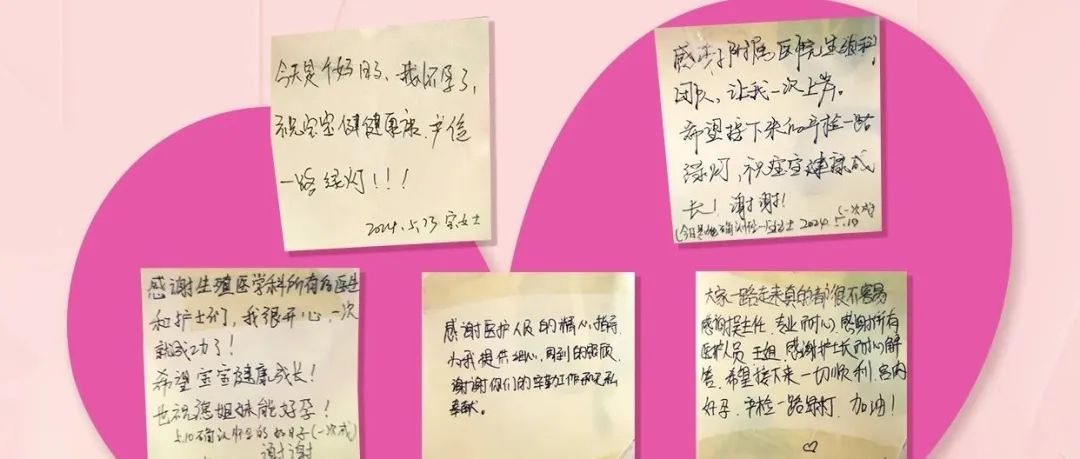 今天是个好日子,我怀孕了,
祝宝宝健健康康,产检
一路绿灯!!!
2024.5.13 宋女士
感谢附属医院生殖科
团队,让我一次上岸。
希望接下来的产检一路
绿灯,祝宝宝健康成
长!谢谢!
2024.5.10 (一次成)
感谢生殖医学科所有的医生
和护士们,我很开心,一次
就成功了!
希望宝宝健康成长!
也祝愿姐妹能好孕!
5.10确认怀孕的好日子(一次成)
谢谢
感谢医护人员的精心指导
为我提供细心,周到的照顾,
谢谢你们的辛勤工作和无私
奉献。
大家一路走来真的都很不容易
感谢 主任,专业耐心,感谢所有
医护人员 王姐,感谢护士长耐心解
答,希望接下来一切顺利,宫内
好孕,产检一路绿灯,加油!